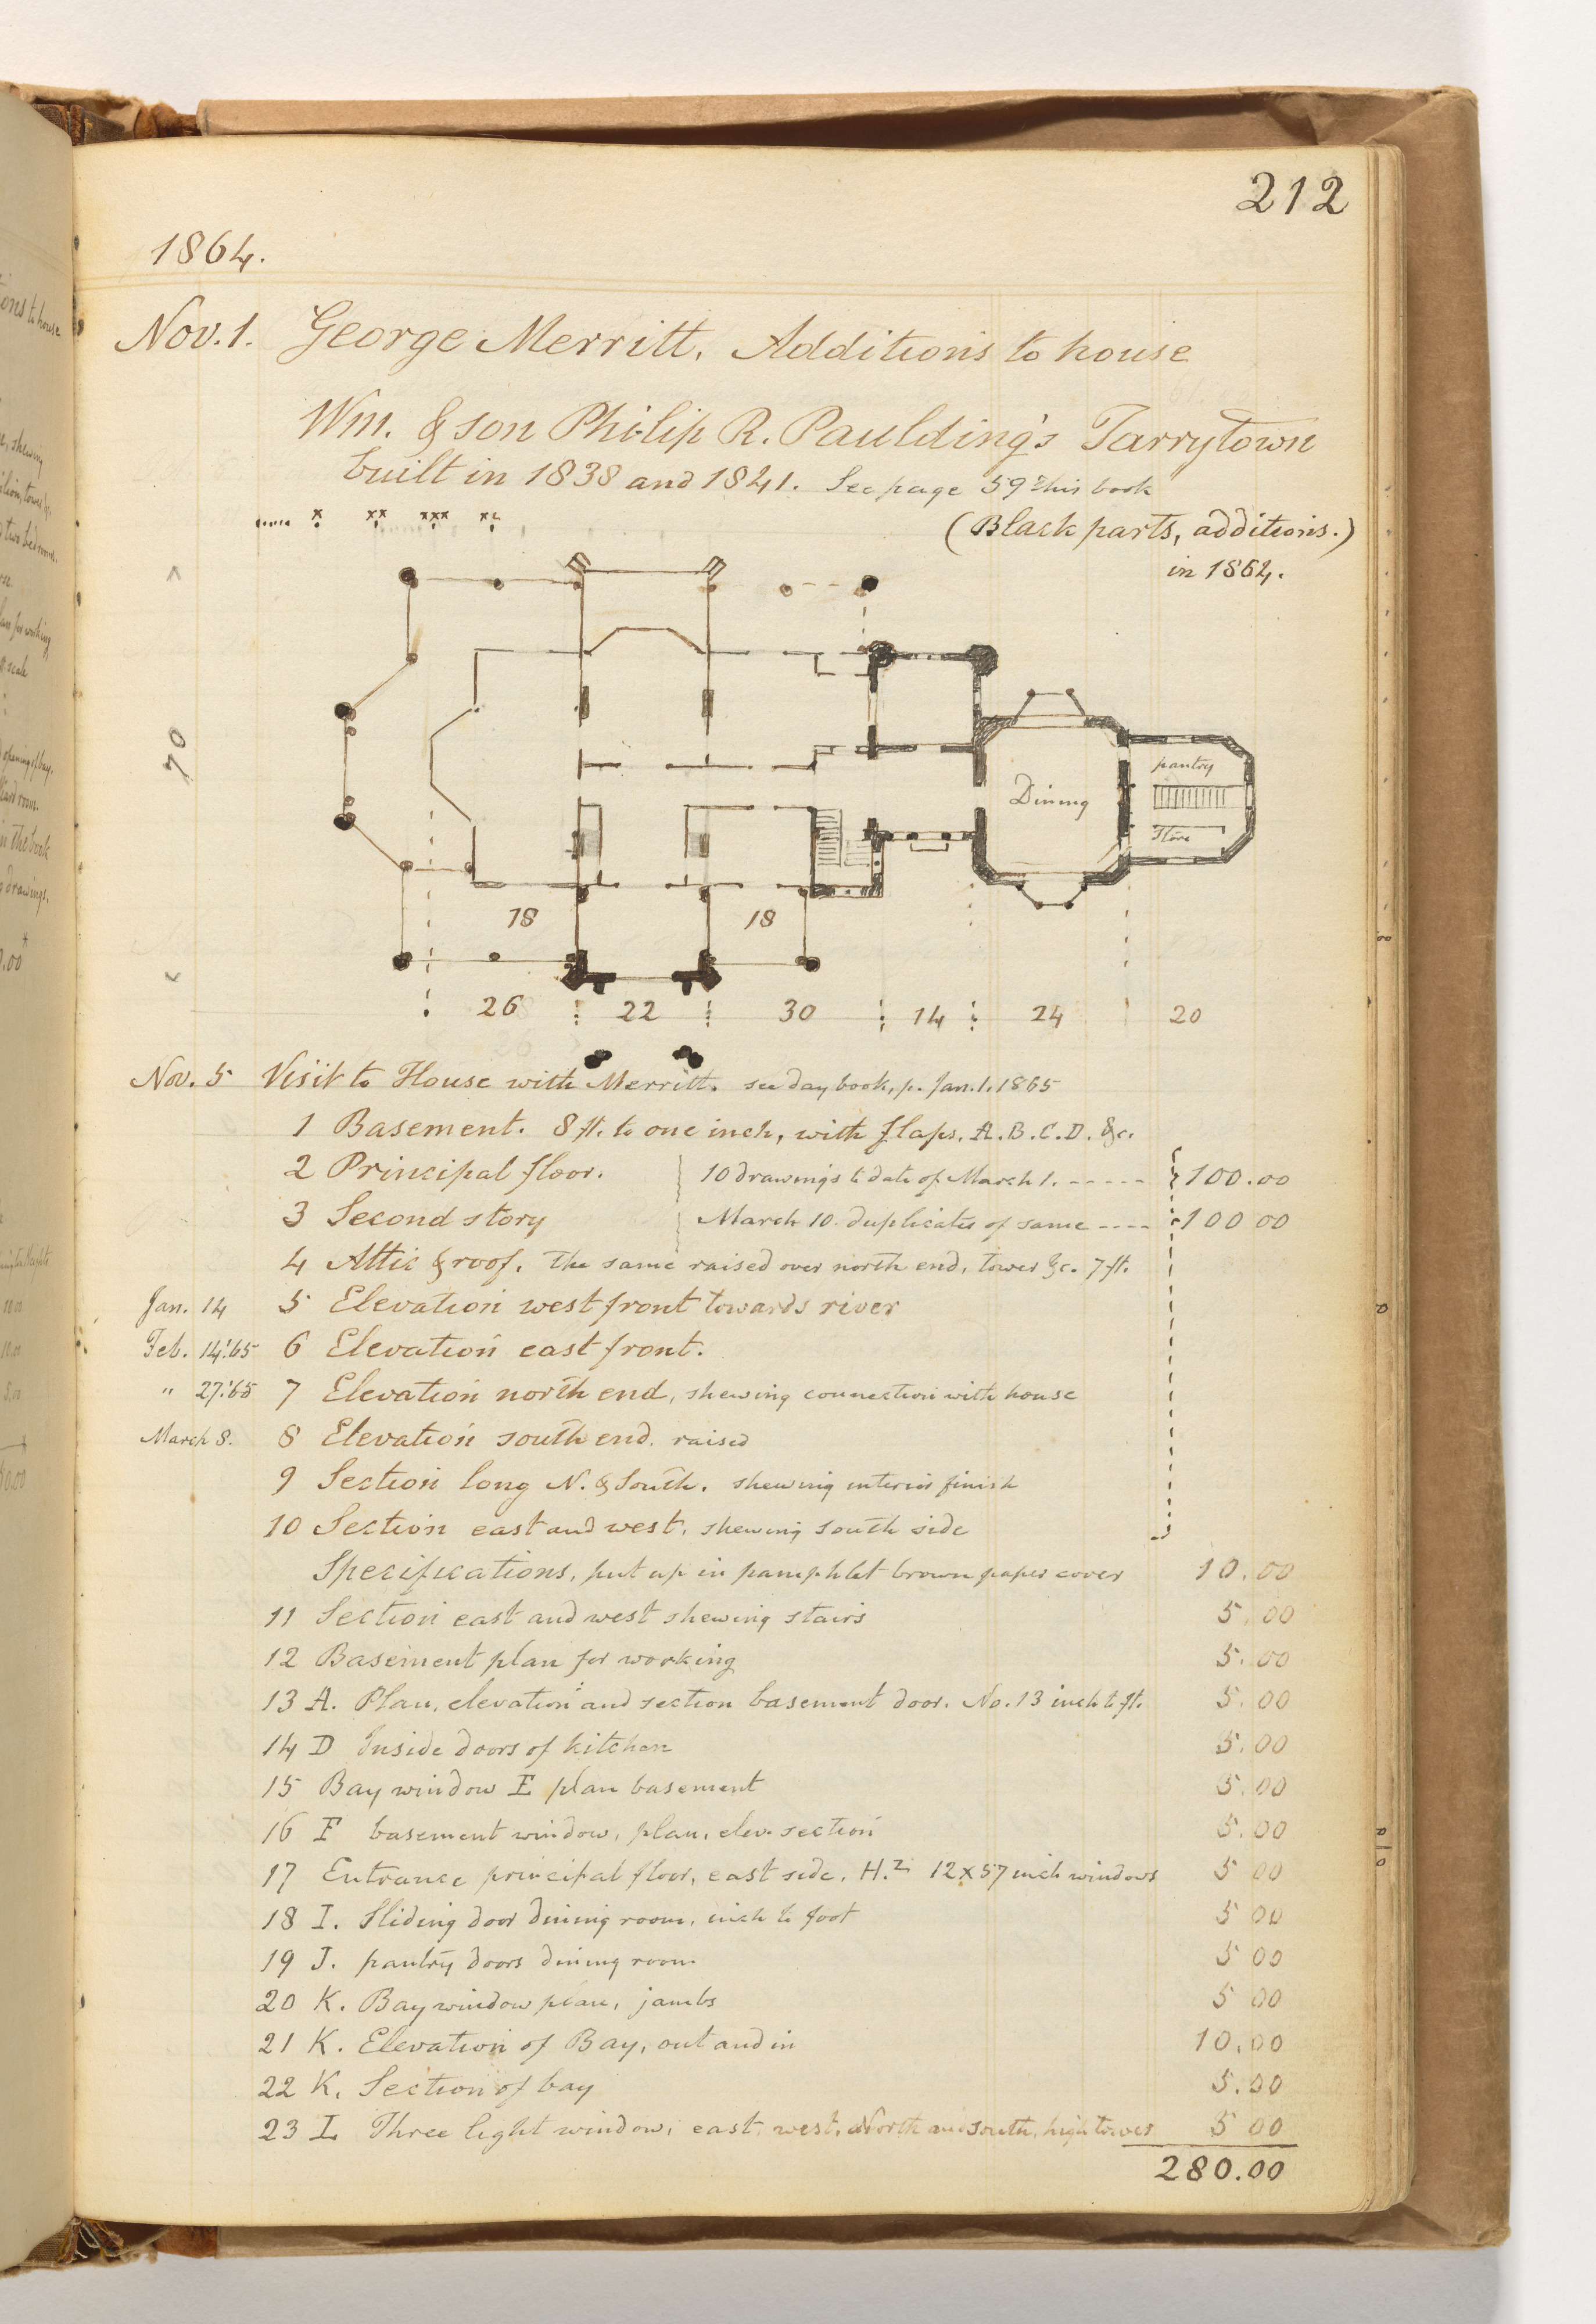 212
1864.
Nov. 1. George Merritt. Additions to house
Wm. & son Philip R. Paulding's Tarrytown
built in 1838 and 1841. See page 59 this book
(Black parts, additions.)
in 1864.
70
pantry
Dining
Store
18 18
26 22 30 14 24 20
Nov. 5 Visit to House with Merritt. see day book, p. Jan. 1. 1865
1 Basement. 8 ft. to one inch, with flaps. A. B. C. D. &c.
2 Principal floor. 10 drawings to date of March 1. ----- 100.00
3 Second story March 10. duplicates of same ---- 100 00
4 Attic & roof. The same raised over north end, tower &c. 7 ft.
Jan. 14 5 Elevation west front towards river
Feb. 14.'65 6 Elevation east front.
" 27.'65 7 Elevation north end, shewing connection with house
March 8. 8 Elevation south end. raised
9 Section long N. & South. shewing interior finish
10 Section east and west, shewing south side
Specifications, put up in pamphlet brown paper cover 10.00
11 Section east and west shewing stairs 5.00
12 Basement plan for working 5.00
13 A. Plan, elevation and section basement door. No. 13 inch to ft. 5.00
14 D Inside doors of kitchen 5.00
15 Bay window E plan basement 5.00
16 F basement window, plan, elev. section 5.00
17 Entrance principal floor, east side. H. 2 12x57 inch windows 5 00
18 I. Sliding door dining room, inch to foot 5 00
19 J. pantry doors dining room 5 00
20 K. Bay window plan, jambs 5 00
21 K. Elevation of Bay, out and in 10.00
22 K. Section of bay 5.00
23 L Three light window, east, west, North and South, high tower 5 00
280.00